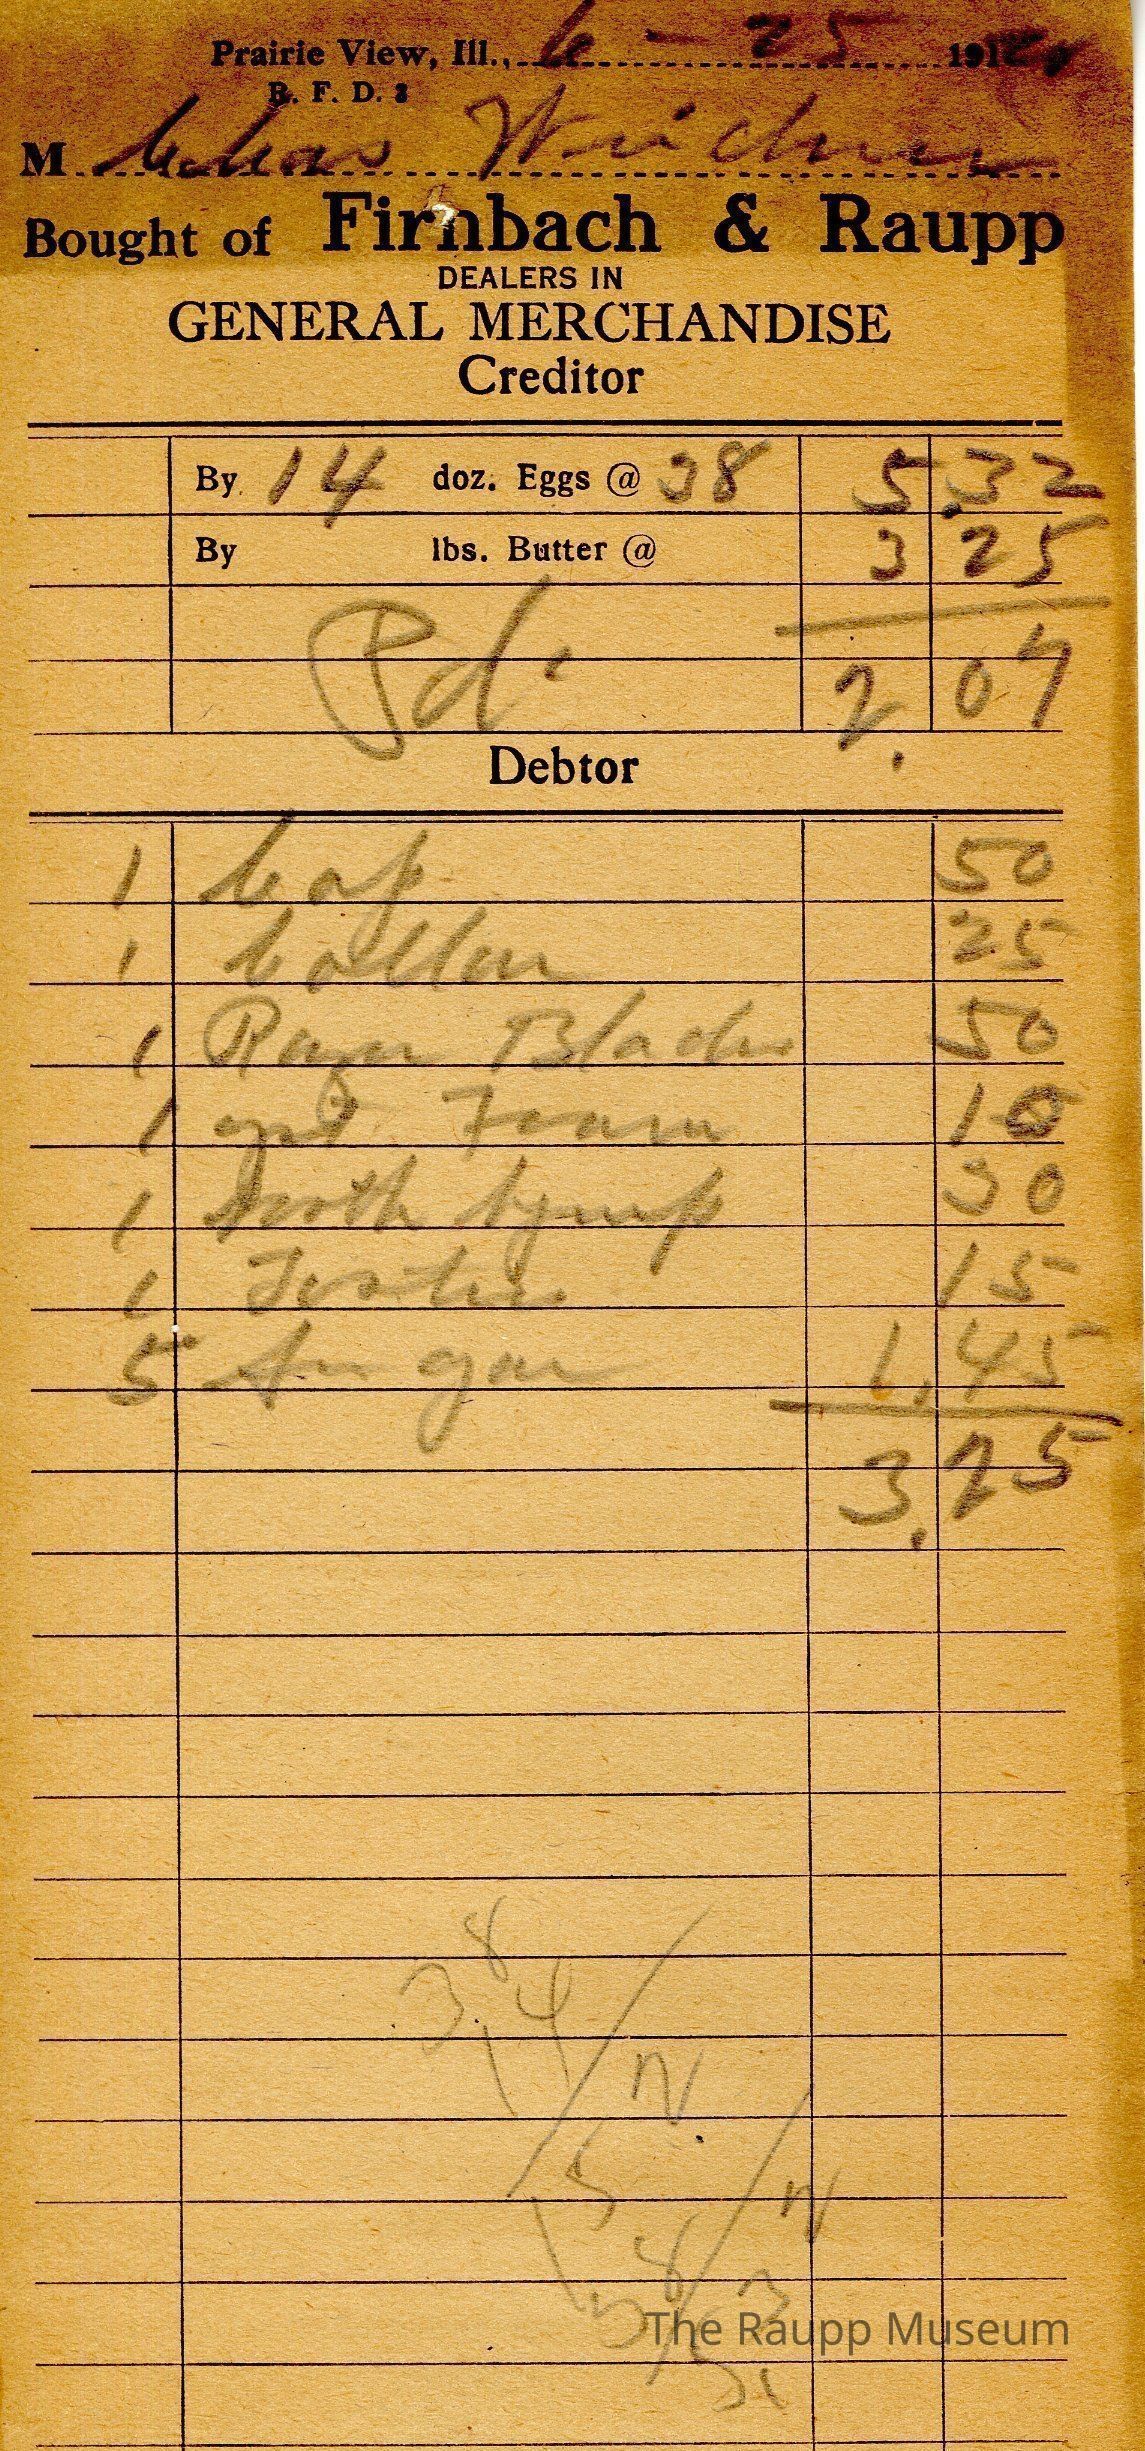 Prairie View, Ill., 6 - 25 191
R. F. D. 3
M. Chas
Bought of Firnbach & Raupp
DEALERS IN
GENERAL MERCHANDISE
Creditor
By 14 doz. Eggs @ 38 5.32
By lbs. Butter @ 3 25
Pd. 2.07
Debtor
1 Cap 50
1 25
1 Razor Blades 50
1 Foam 10
1 Syrup 30
1 15
5 Sugar 1.45
3.25
38
14
The Raupp Museum